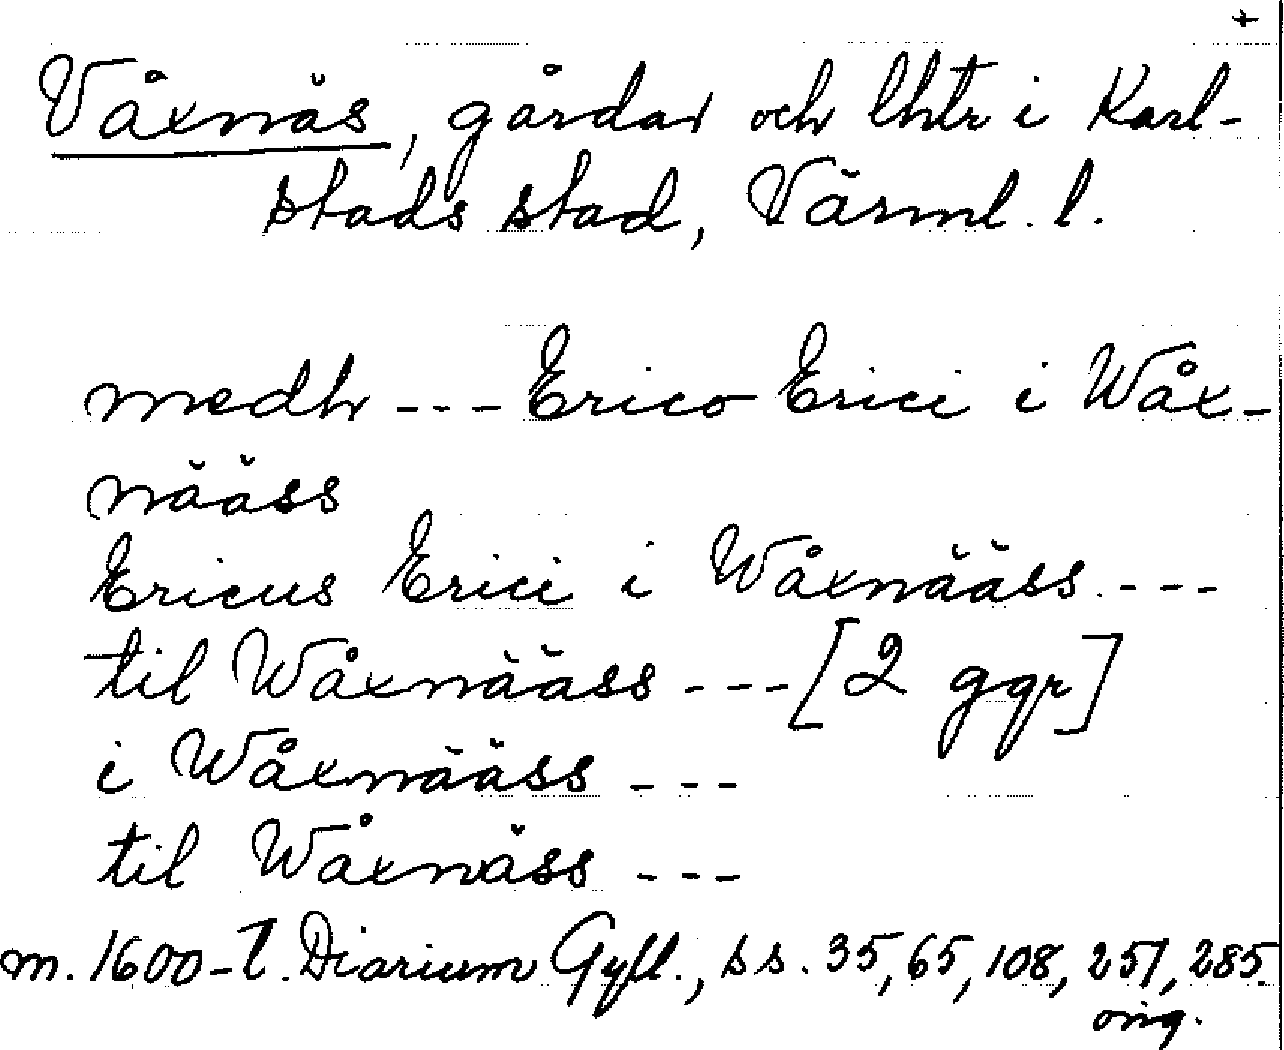 +
Våxnäs, gårdar och lhtr i Karl-
stads stad, Värml. l.
medh --- Erico Erici i Wåx-
nääss
Ericus Erici i Wåxnääss ---
til Wåxnääss --- [2 ggr]
i Wåxnääss ---
til Wåxnäss ---
m. 1600-t. Diarium Gyll., ss. 35, 65, 108, 251, 285.
orig.